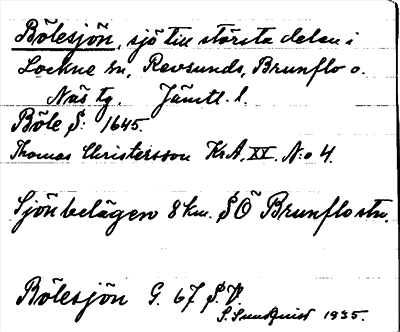 Bölesjön, sjö till största delen i
Lockne sn, Revsunds, Brunflo o.
Näs tg. Jämtl. l.
Böle S: 1645.
Thomas Christersson KrA, XX. N:o 4.
Sjön belägen 8 km. SÖ Brunflo stn.
Bölesjön G. 67 S.V.
S. Sundquist 1935.